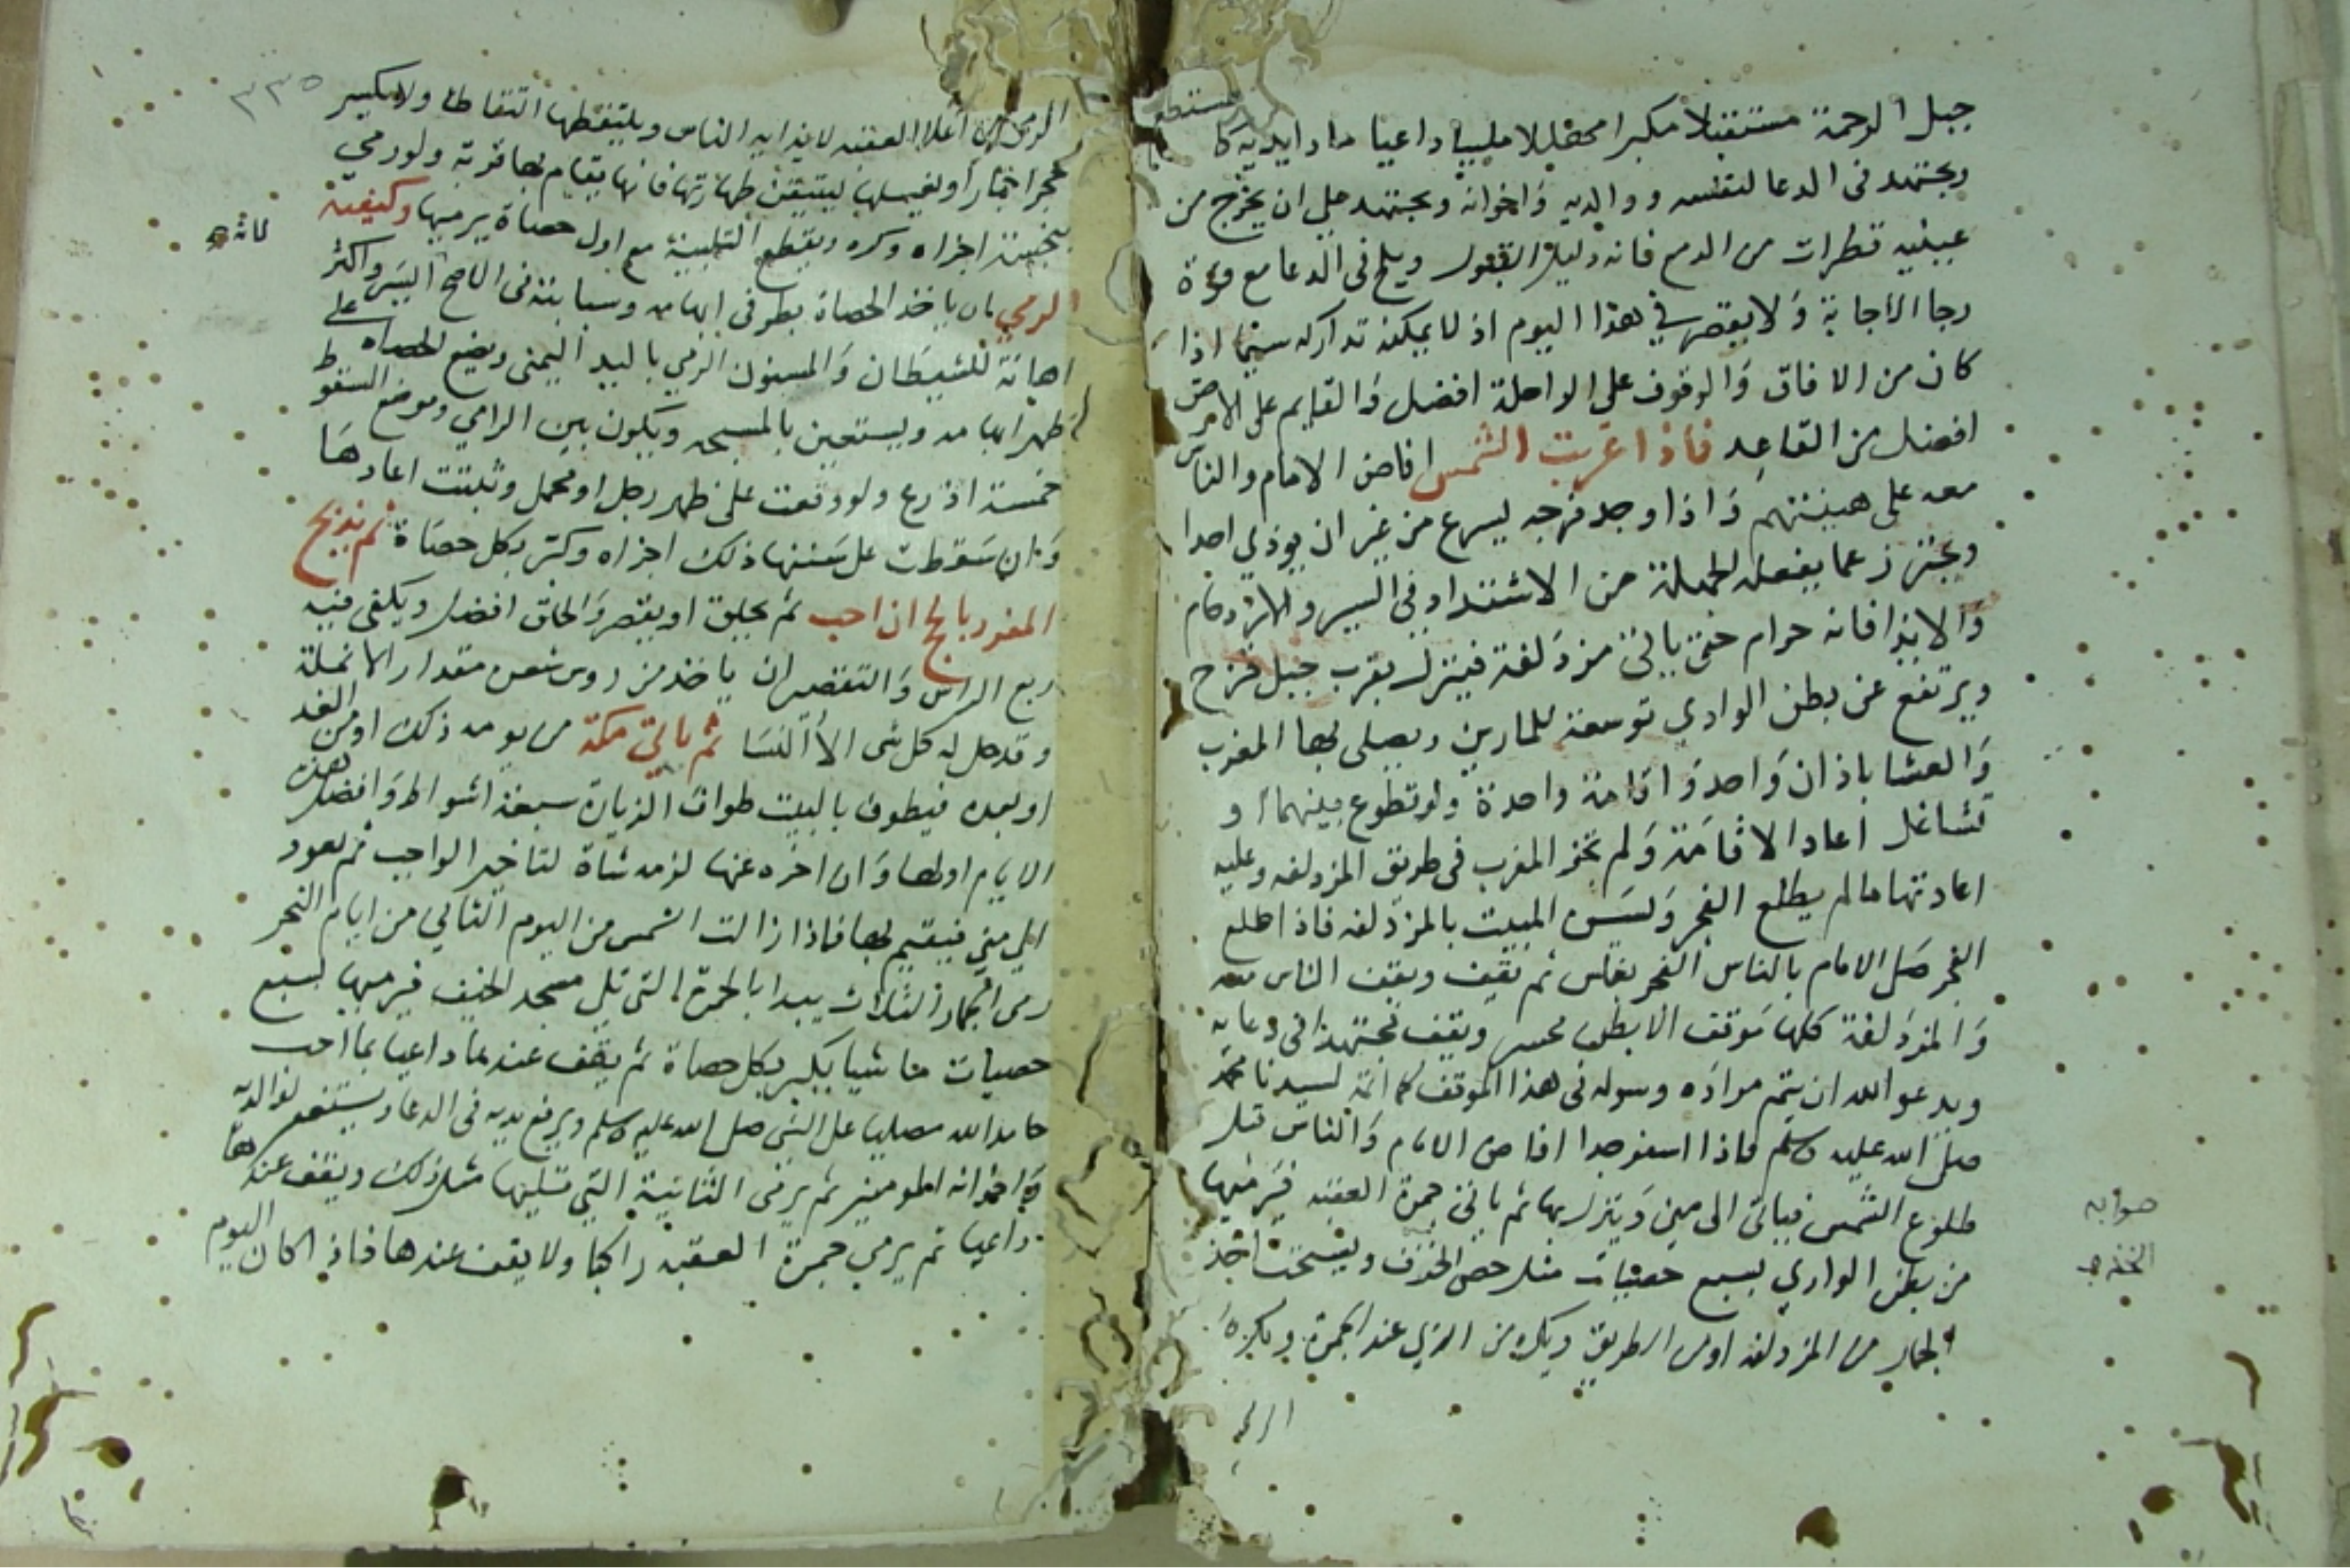 جبل الرحمة مستقبلا مكبرا مهللا ملبيا داعيا مادا يديه كالمستطعم
ويجتهد فى الدعا لنفسه ووالديه واخوانه ويجتهد على ان يخرج من
عينيه قطرات من الدمع فانه دليل القبول ويلح فى الدعا مع قوة
رجا الاجابة ولا يقصر في هذا اليوم اذ لا يمكنه تداركه سيما اذا
كان من الافاق والوقوف على الراحلة افضل والقايم على الارض
افضل من القاعد فاذا غربت الشمس افاض الامام والناس
معه على هينتهم واذا وجد فرجه يسرع من غير ان يوذي احدا
ويحترز عما يفعله الجهلة من الاشتداد في السير والازدحام
والايذا فانه حرام حتى ياتى مزدلفة فينزل بقرب جبل قزح
ويرتفع عن بطن الوادي توسعة للمارين ويصلى بها المغرب
والعشا باذان واحد واقامة واحدة ولو تطوع بينهما او
تشاغل اعاد الاقامة ولم تجز المغرب فى طريق المزدلفه وعليه
اعادتها مالم يطلع الفجر ويسن المبيت بالمزدلفه فاذا طلع
الفجر صلى الامام بالناس الفجر بغلس ثم يقف ويقف الناس معه
والمزدلفة كلها موقف الا بطن محسر ويقف مجتهدا فى دعايه
ويدعو الله ان يتم مراده وسوله فى هذا الموقف كما اتمه لسيدنا محمد
صلى الله عليه وسلم فاذا اسفر جدا افاض الامام والناس قبل
طلوع الشمس فياتى الى منى وينزل بها ثم ياتى جمرة العقبه فيرميها
من بطن الوادي بسبع حصيات مثل حصى الخزف ويستحب اخذ
الجمار من المزدلفه او من الطريق ويكره من الذي عند الجمرة ويكره
صوابه
الخذف
الرمي
٣٣٥
الرمي من اعلا العقبه لايذايه الناس ويلتقطها التقاطا ولا يكسر
حجرا جمارا ويغسلها ليتيقن طهارتها فانها يقام بها قربة ولو رمي
بنجسة اجزاه وكره ويقطع التلبية مع اول حصاة يرميها وكيفية
الرمي ان ياخذ الحصاة بطرفى ابهامه وسبابته فى الاصح لانه ايسر واكثر
اهانة للشيطان والمسنون الرمي باليد اليمنى ويضع الحصاه على
ظهر ابهامه ويستعين بالمسبحه ويكون بين الرامي وموضع السقوط
خمسة اذرع ولو وقعت على ظهر رجل او محمل وثبتت اعادها
وان سقطت على سننها ذلك اجزاه وكبر بكل حصاة ثم يذبح
المفرد بالحج ان احب ثم يحلق او يقصر والحلق افضل ويكفى فيه
ربع الراس والتقصير ان ياخذ من روس شعره مقدار الانملة
وقد حل له كل شى الا النسا ثم ياتي مكة من يومه ذلك او من الغد
او بعده فيطوف بالبيت طواف الزيارة سبعة اشواط وافضل هذه
الايام اولها وان اخره عنها لزمه شاة لتاخير الواجب ثم يعود
الي مني فيقيم بها فاذا زالت الشمس من اليوم الثاني من ايام النحر
رمى الجمار الثلاث يبدا بالجمرة التى تلى مسجد الخيف فيرميها بسبع
حصيات ماشيا يكبر بكل حصاة ثم يقف عندها داعيا بما احب
حامدا لله مصليا على النبى صلى الله عليه وسلم ويرفع يديه فى الدعا ويستغفر لوالديه
واخوانه المومنين ثم يرمى الثانية التي تليها مثل ذلك ويقف عندها
داعيا ثم يرمي جمرة العقبه راكبا ولا يقف عندها فاذا كان اليوم